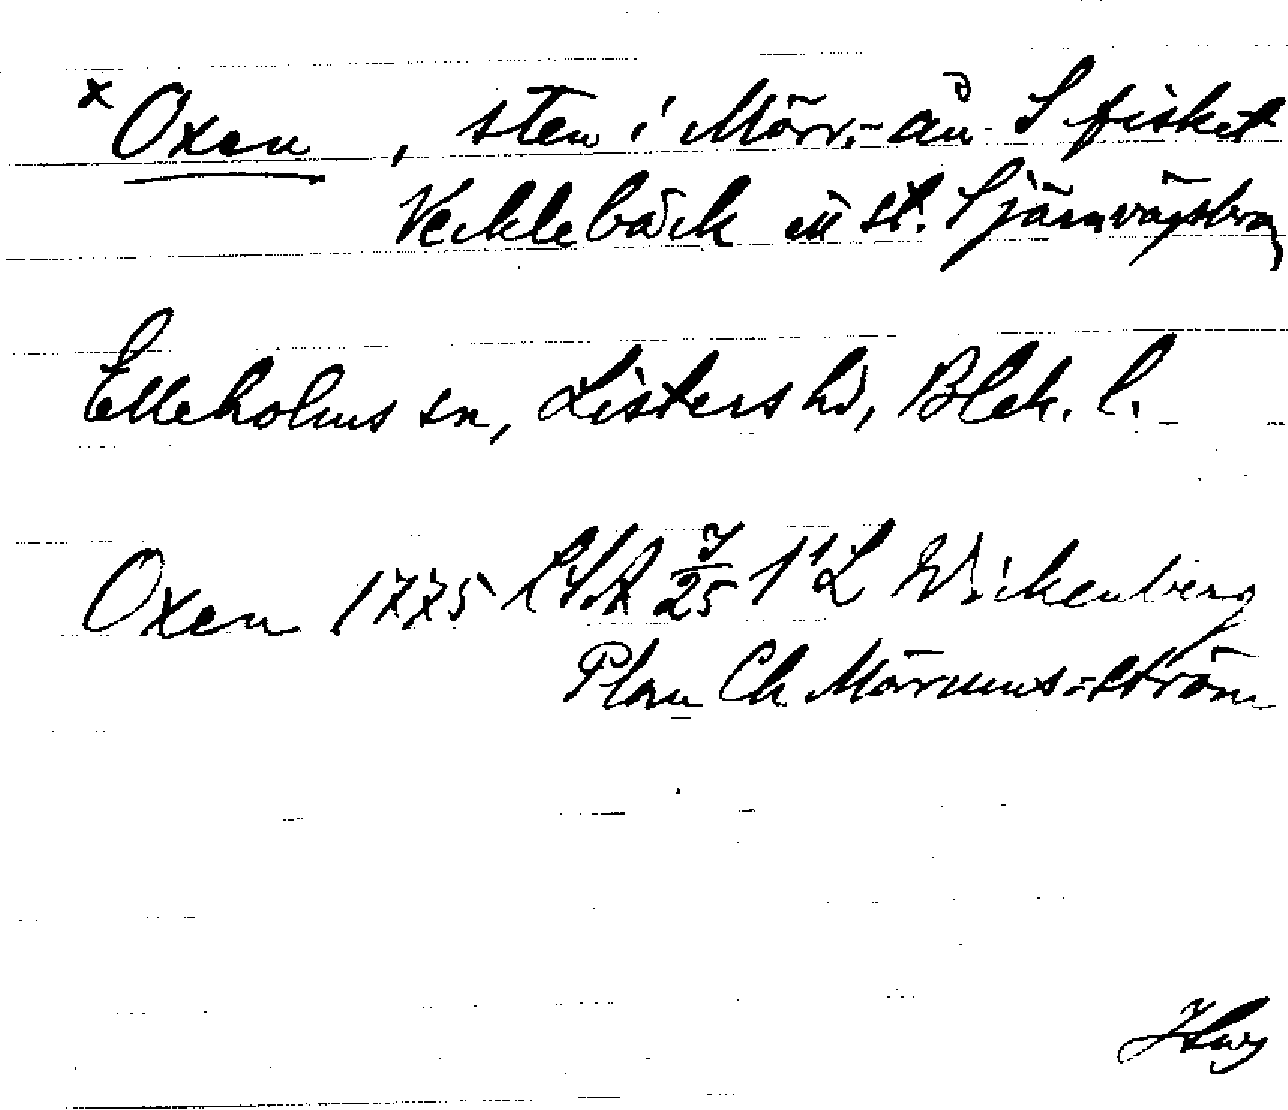 x Oxen, sten i Mörr.-ån S fisket
bäck st. S järnvägsbron
Elleholms sn, Listers hd, Blek. l.
Oxen 1775 LSA 25 L Wickenberg
Plan Ch Mörrums-ström